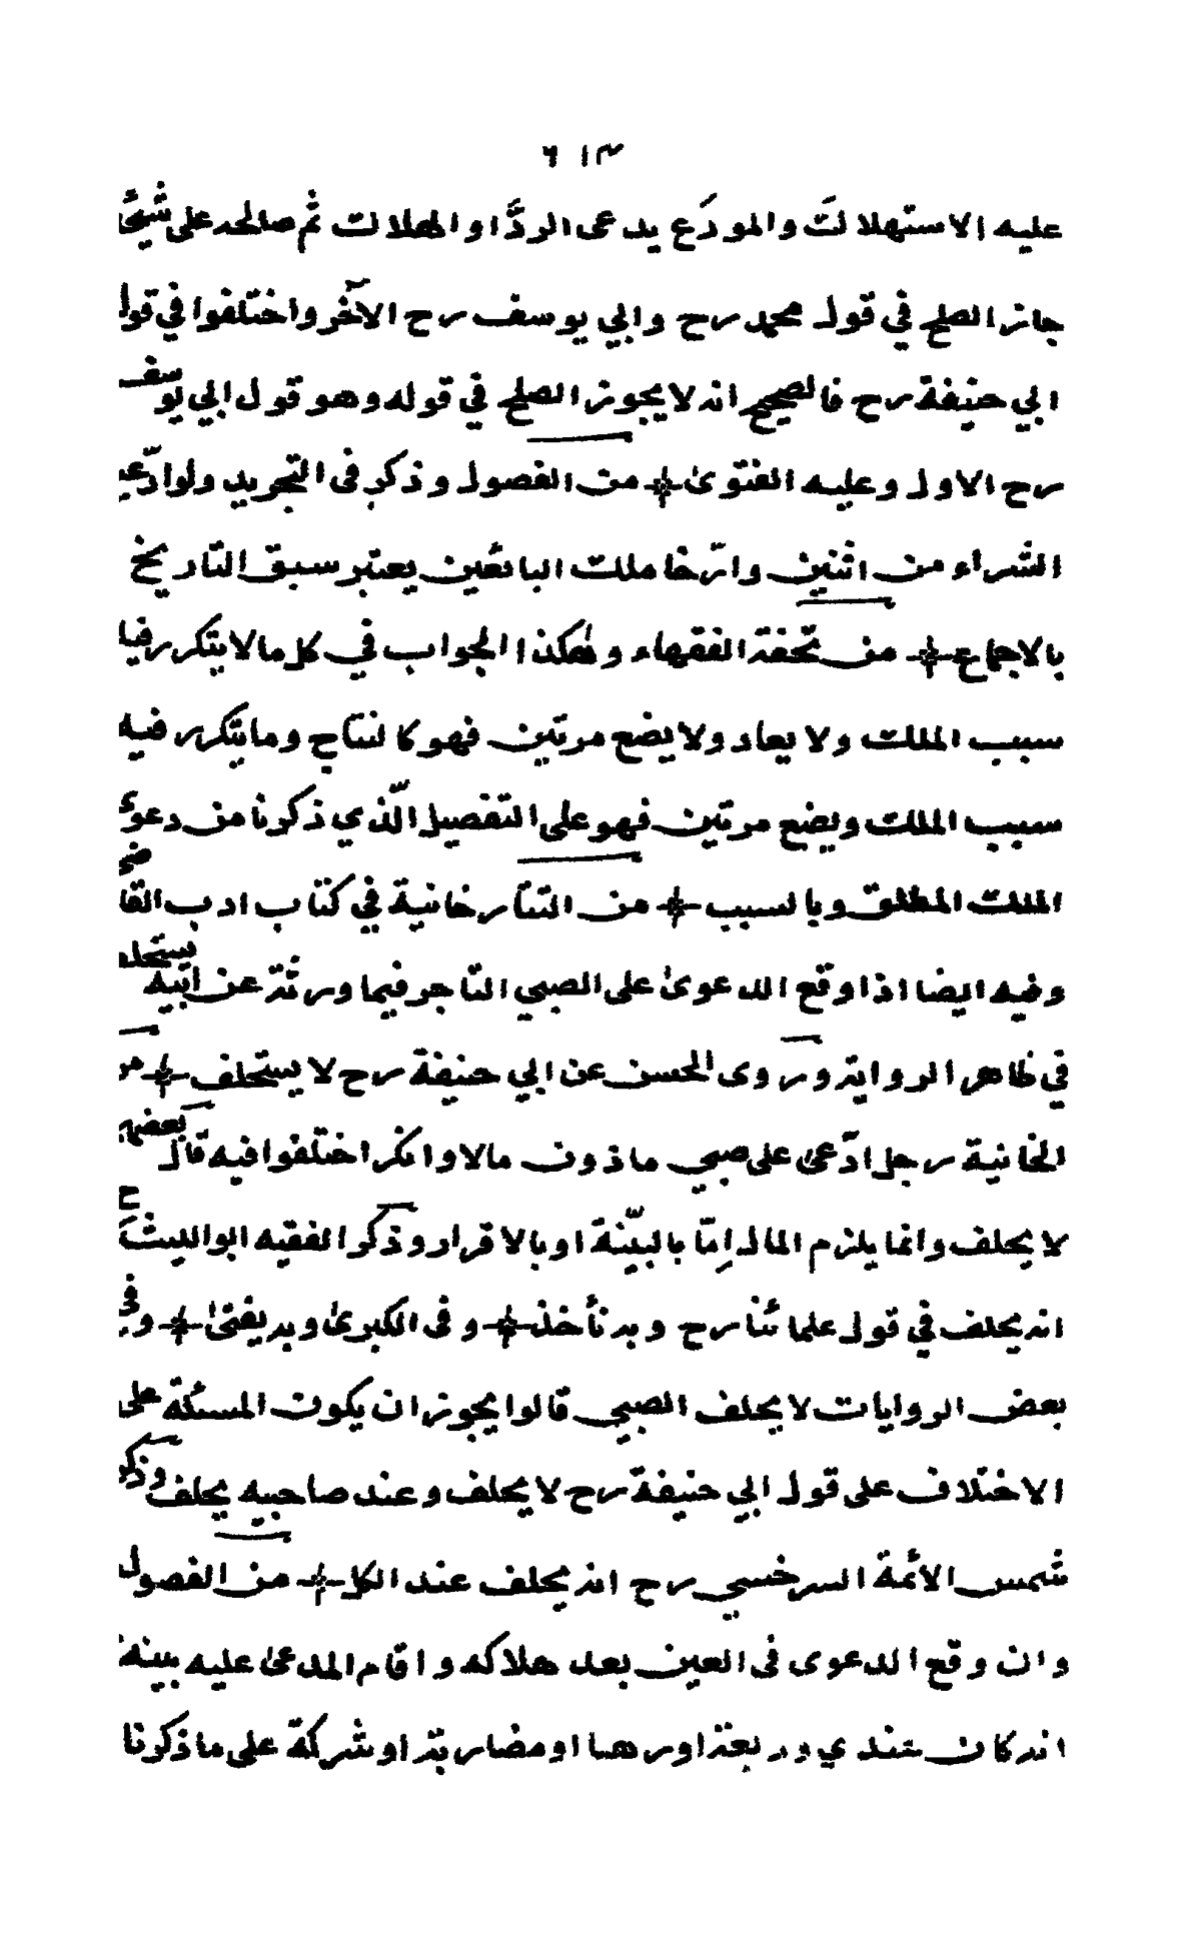 ٦١٣
عليه الاستهلاك والمودَع يدعى الردَّ او الهلاك ثم صالحه على شيئ
جاز الصلح في قول محمد رح وابي يوسف رح الآخر واختلفوا في قول
ابي حنيفة رح فالصحيح انه لا يجوز الصلح في قوله وهو قول ابي يوسف
رح الاول وعليه الفتوى من الفصول وذكر فى التجريد ولو ادّعى
الشراء من اثنين وارّخا ملك البائعين يعتبر سبق التاريخ
بالاجماع من تحفة الفقهاء وهكذا الجواب في كل مالا يتكرر فيه
سبب الملك ولا يعاد ولا يضع مرتين فهو كا لنتاج وما يتكرر فيه
سبب الملك ويضع مرتين فهو على التفصيل الّذي ذكرنا من دعوى
الملك المطلق وبا لسبب من التتار خانية في كتاب ادب القاضى
وفيه ايضا اذا وقع الدعوى على الصبي التاجر فيما ورثة عن ابيه يستحلف
في ظاهر الرواية وروى الحسن عن ابي حنيفة رح لا يستحلف من
الخانية رجل ادّعى على صبي ماذون مالا وانكر اختلفوا فيه قال بعضهم
لا يحلف وانما يلزم المال اِمّا بالبيّنة او بالاقرار وذكر الفقيه ابو الليث رح
انه يحلف في قول علمائنا رح وبه نأخذ وفى الكبرى وبه يفتى وفي
بعض الروايات لا يحلف الصبي قالوا يجوز ان يكون المسئلة على
الاختلاف على قول ابي حنيفة رح لا يحلف وعند صاحبيه يحلف وذكر
شمس الأئمة السرخسي رح انه يحلف عند الكل من الفصول
وان وقع الدعوى فى العين بعد هلاكه واقام المدعى عليه بينة
انه كان عندي وديعة او رهنا او مضاربة او شركة على ما ذكرنا